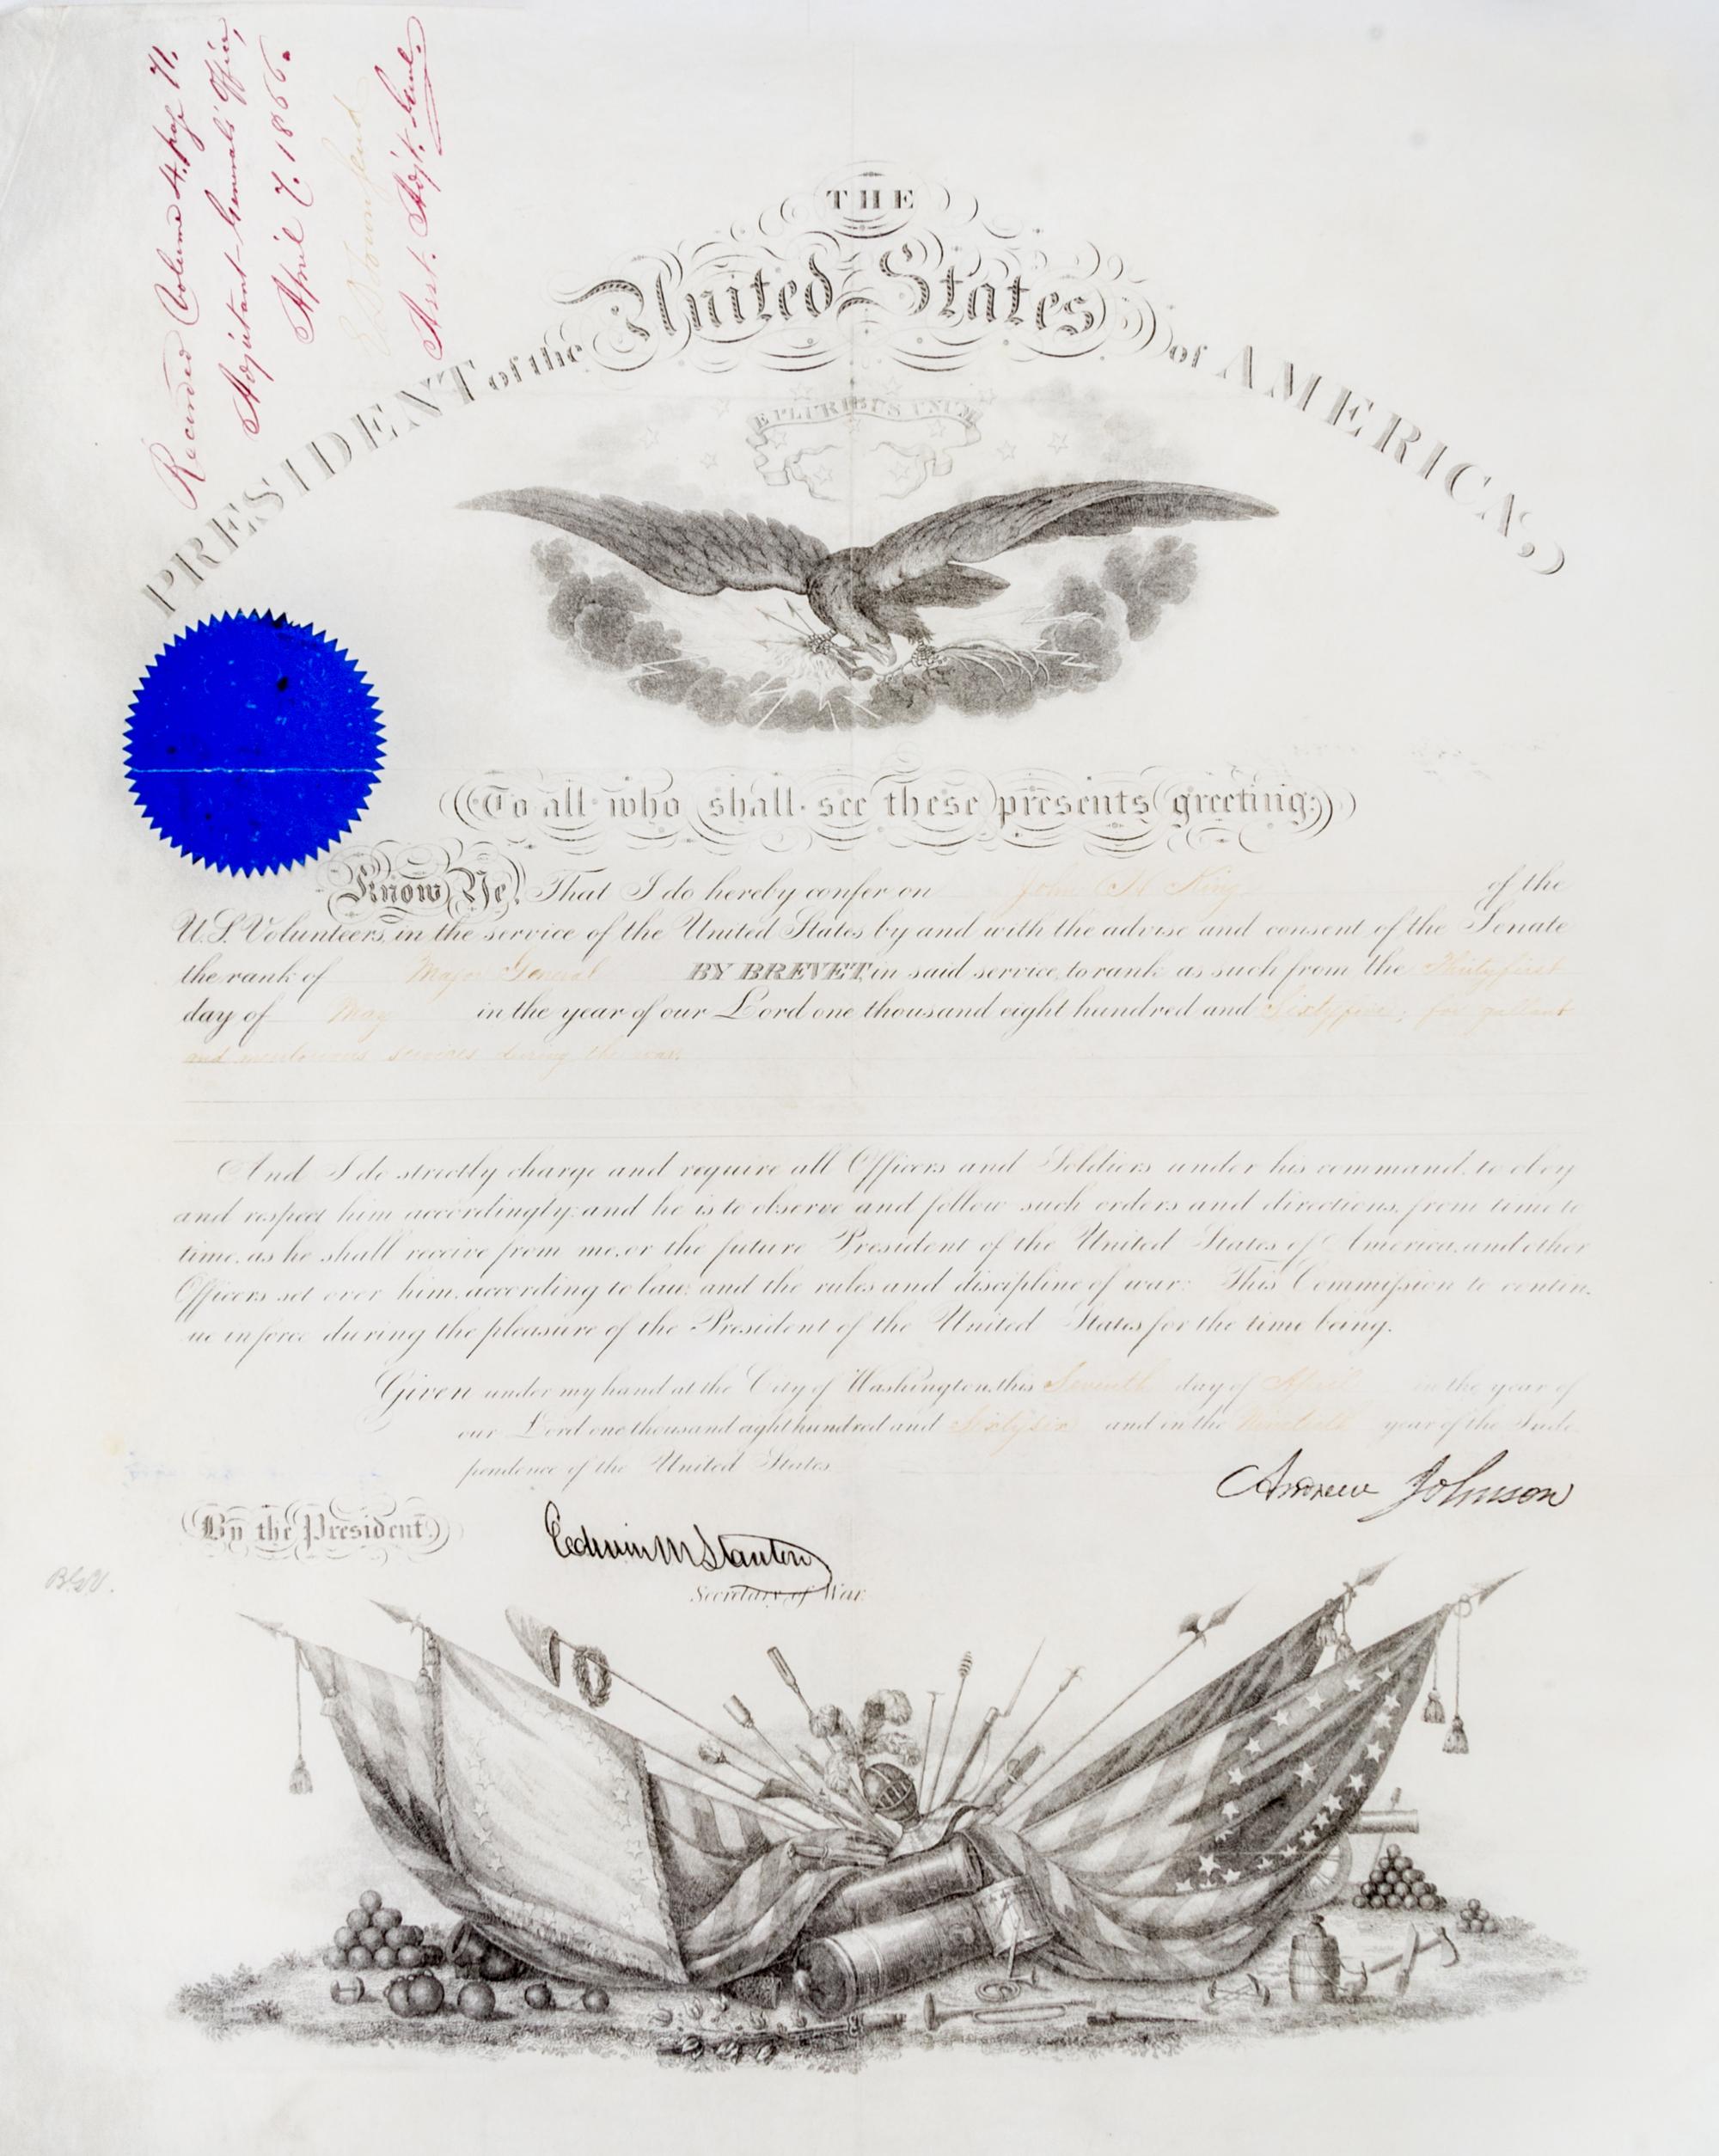 Recorded Volume 4. page 71.
Adjutant-General's Office,
April 7. 1866.
E D Townsend
Asst. Adjt. Genl.
THE
PRESIDENT of the United States of AMERICA,
E PLURIBUS UNUM
To all who shall see these presents greeting:
Know Ye, That I do hereby confer on John H King of the
U.S. Volunteers, in the service of the United States by and with the advise and consent of the Senate
the rank of Major General BY BREVET, in said service, to rank as such from the Thirtyfirst
day of May in the year of our Lord one thousand eight hundred and Sixtyfive; for gallant
and meritorious services during the war.
And I do strictly charge and require all Officers and Soldiers under his command, to obey
and respect him accordingly: and he is to observe and follow such orders and directions, from time to
time, as he shall receive from me, or the future President of the United States of America, and other
Officers set over him, according to law, and the rules and discipline of war: This Commission to contin-
ue in force during the pleasure of the President of the United States for the time being.
Given under my hand at the City of Washington, this Seventh day of April in the year of
our Lord one thousand eight hundred and Sixtysix and in the Ninetieth year of the Inde-
pendence of the United States
Andrew Johnson
By the President.
Edwin M Stanton
Secretary of War.